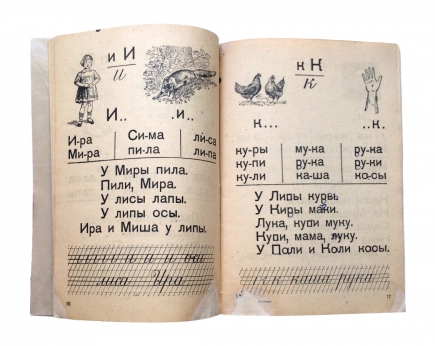 и И
и
И.. .и..
И-ра Си-ма ли-са
Ми-ра пи-ла ли-па
У Миры пила.
Пили, Мира.
У лисы лапы.
У липы осы.
Ира и Миша у липы.
и и и оси
лиса Ира
16
к К
к
к... ..к.
ку-ры му-ка ру-ка
ку-пи ру-ка ру-ки
ку-ли ка-ша ко-сы
У Липы куры.
У Киры маки.
Лука, купи муку.
Купи, мама, муку.
У Поли и Коли косы.
к к каша рука
17